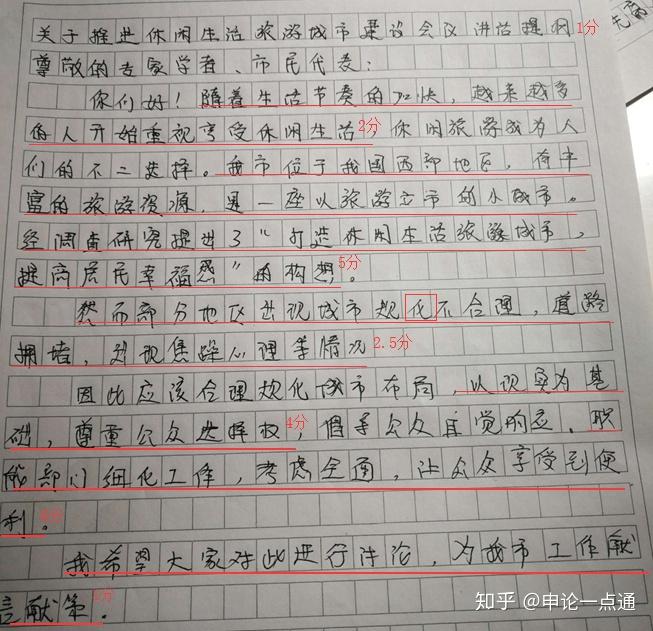 关于推进休闲生活旅游城市建设会议讲话提纲 1分
尊敬的专家学者、市民代表：
你们好！随着生活节奏的加快，越来越多
的人开始重视享受休闲生活 2分 休闲旅游成为人
们的不二选择。我市位于我国西部地区，有丰
富的旅游资源，是一座以旅游立市的小城市。
经调查研究提出了“打造休闲生活旅游城市，
提高居民幸福感”的构想。 5分
然而部分地区出现城市规化不合理，道路
拥堵，出现焦躁心理等情况 2.5分
因此应该合理规化城市布局，以现实为基
础，尊重公众选择权 4分，倡导公众自觉响应。职
能部门细化工作，考虑全通，让公众享受到便
利。
我希望大家对此进行讨论，为我市工作献
言献策。
知乎 @申论一点通